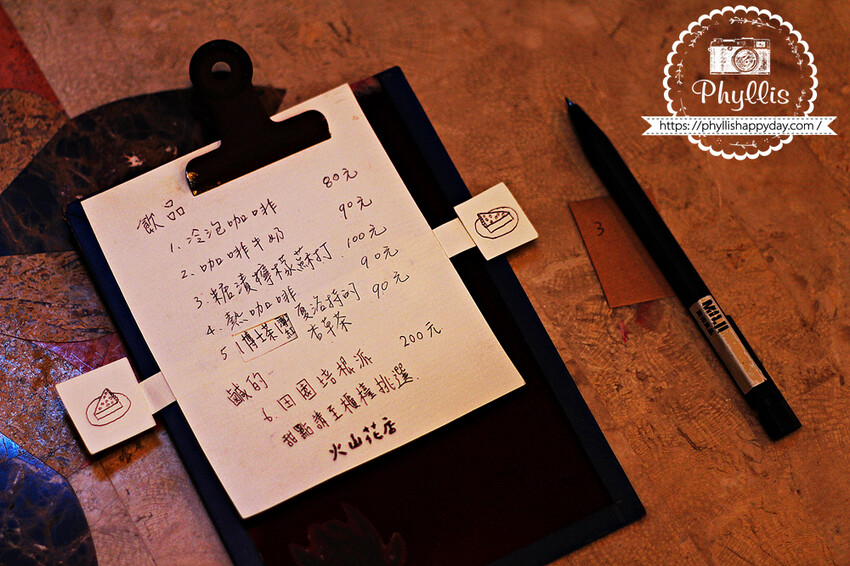 飲品
1. 冷泡咖啡 80元
2. 咖啡牛奶 90元
3. 糖漬檸檬蘇打 100元
4. 熱咖啡 90元
5 博士茶 夏洛特的 90元
香草茶
鹹的-
6. 田園培根派 200元
甜點請至櫃檯挑選
火山花店
3
MUJI
Phyllis
https://phyllishappyday.com/